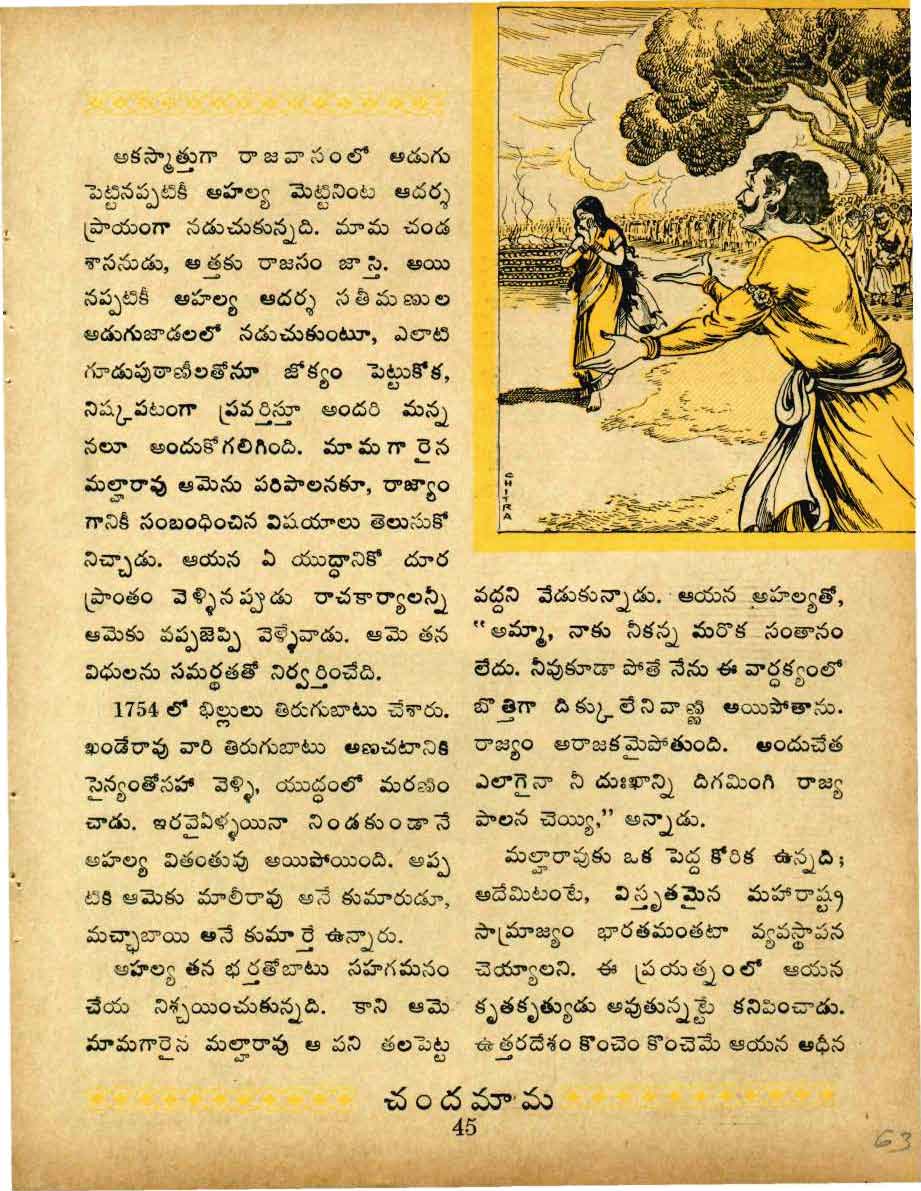 CHITRA
అకస్మాత్తుగా రాజవాసంలో అడుగు
పెట్టినప్పటికీ అహల్య మెట్టినింట ఆదర్శ
ప్రాయంగా నడుచుకున్నది. మామ చండ
శాసనుడు, అత్తకు రాజసం జాస్తి. అయి
నప్పటికీ అహల్య ఆదర్శ సతీమణుల
అడుగుజాడలలో నడుచుకుంటూ, ఎలాటి
గూడుపుఠాణీలతోనూ జోక్యం పెట్టుకోక,
నిష్కపటంగా ప్రవర్తిస్తూ అందరి మన్న
నలూ అందుకోగలిగింది. మామగారైన
మల్హారావు ఆమెను పరిపాలనకూ, రాజ్యాం
గానికీ సంబంధించిన విషయాలు తెలుసుకో
నిచ్చాడు. ఆయన ఏ యుద్ధానికో దూర
ప్రాంతం వెళ్ళినప్పుడు రాచకార్యాలన్నీ
ఆమెకు వప్పజెప్పి వెళ్ళేవాడు. ఆమె తన
విధులను సమర్థతతో నిర్వర్తించేది.
1754 లో భిల్లులు తిరుగుబాటు చేశారు.
ఖండేరావు వారి తిరుగుబాటు అణచటానికి
సైన్యంతోసహా వెళ్ళి, యుద్ధంలో మరణిం
చాడు. ఇరవైఏళ్ళయినా నిండకుండానే
అహల్య వితంతువు అయిపోయింది. అప్ప
టికి ఆమెకు మాలీరావు అనే కుమారుడూ,
మచ్ఛాబాయి అనే కుమార్తె ఉన్నారు.
అహల్య తన భర్తతోబాటు సహగమనం
చేయ నిశ్చయించుకున్నది. కాని ఆమె
మామగారైన మల్హారావు ఆ పని తలపెట్ట
వద్దని వేడుకున్నాడు. ఆయన అహల్యతో,
"అమ్మా, నాకు నీకన్న మరొక సంతానం
లేదు. నీవుకూడా పోతే నేను ఈ వార్ధక్యంలో
బొత్తిగా దిక్కులేనివాణ్ణి అయిపోతాను.
రాజ్యం అరాజకమైపోతుంది. అందుచేత
ఎలాగైనా నీ దుఃఖాన్ని దిగమింగి రాజ్య
పాలన చెయ్యి," అన్నాడు.
మల్హారావుకు ఒక పెద్ద కోరిక ఉన్నది;
అదేమిటంటే, విస్తృతమైన మహారాష్ట్ర
సామ్రాజ్యం భారతమంతటా వ్యవస్థాపన
చెయ్యాలని. ఈ ప్రయత్నంలో ఆయన
కృతకృత్యుడు అవుతున్నట్టే కనిపించాడు.
ఉత్తరదేశం కొంచెం కొంచెమే ఆయన అధీన
చందమామ
45
63